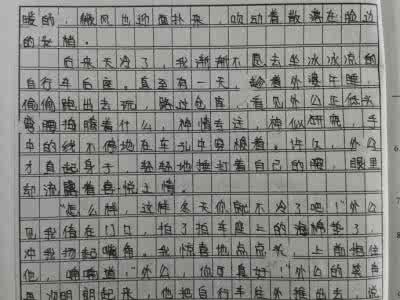 暖的，微风也扬面扑来，吹动着散落在脸边
的发梢。
后来天冷了，我渐渐不愿去坐冰冰凉的
自行车后座。直至有一天，趁着外婆午睡，
偷偷跑出去玩，路过仓库，看见外公正低头
弯腰捣腾着什么，神情专注，神似研究，手
中的线不停地在车孔中穿梭着。许久，外公
才直起身子，轻轻地捶打着自己的腰，眼里
却流露着喜悦之情。
“怎么样，这样冬天你就不冷了吧！”外公
见我倚在门口，拍了拍车座上的海绵垫子，
冲我扬起嘴角。我惊喜地点点头，上前抱住
他，喃喃道：“外公，你可真好！”外公的笑声
朗起来，他把自行车往外推出去，说